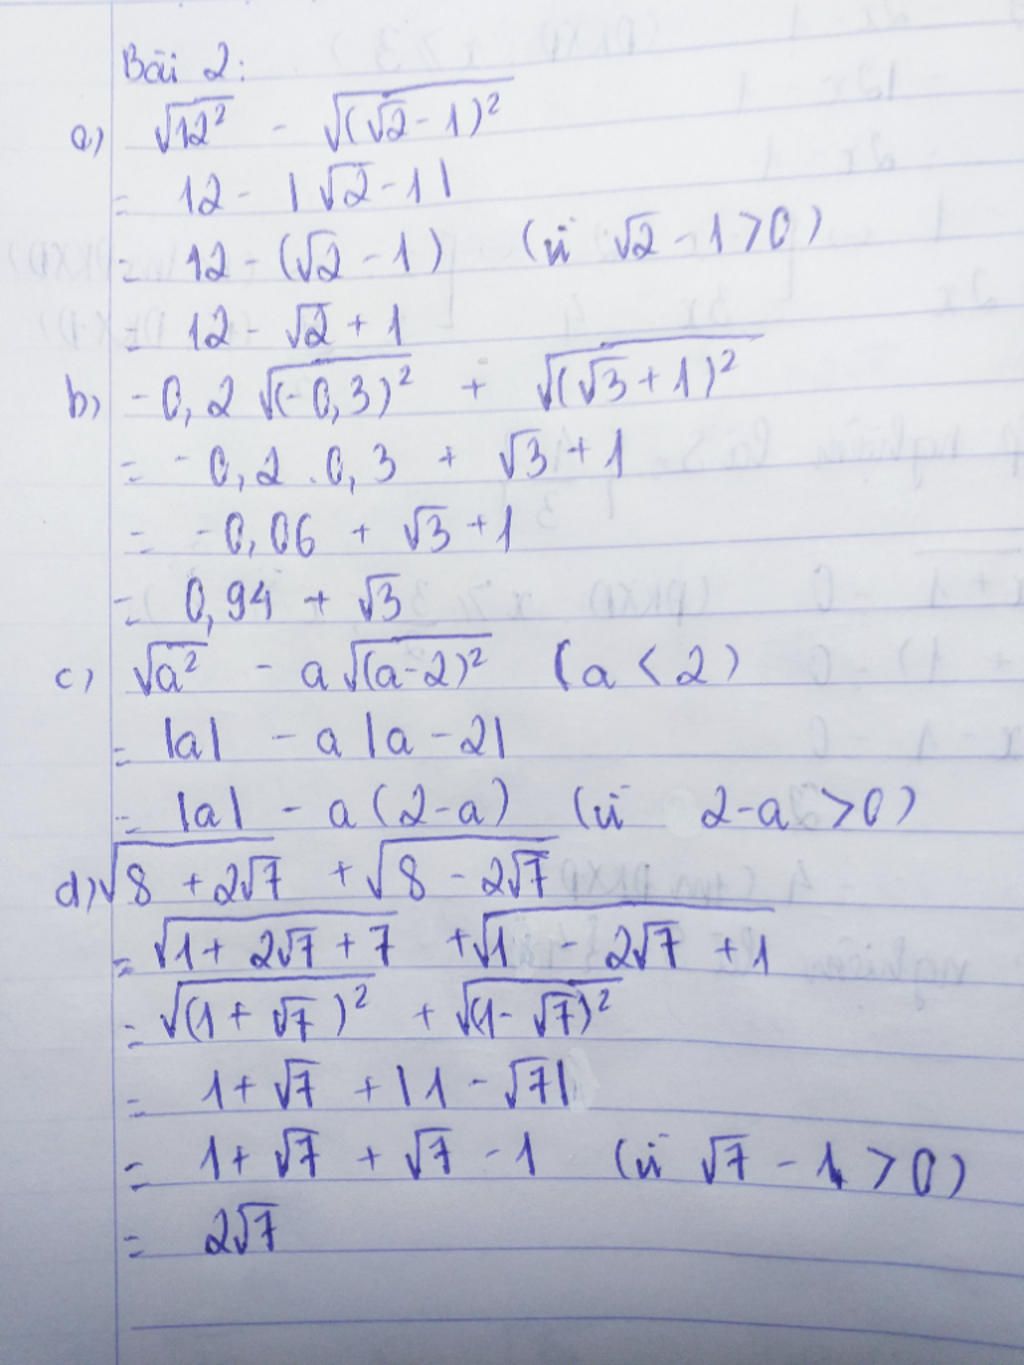 Bài 2:
a) √12² - √(√2 - 1)²
= 12 - |√2 - 1|
= 12 - (√2 - 1) (vì √2 - 1 > 0)
= 12 - √2 + 1
b) -0,2 √(-0,3)² + √(√3 + 1)²
= -0,2 . 0,3 + √3 + 1
= -0,06 + √3 + 1
= 0,94 + √3
c) √a² - a √(a-2)² (a < 2)
= |a| - a |a - 2|
= |a| - a (2-a) (vì 2-a > 0)
d) √8 + 2√7 + √8 - 2√7
= √1 + 2√7 + 7 + √1 - 2√7 + 1
= √(1 + √7)² + √(1 - √7)²
= 1 + √7 + |1 - √7|
= 1 + √7 + √7 - 1 (vì √7 - 1 > 0)
= 2√7